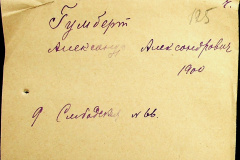 125
Гумберт
Александр Александрович
1900
9 Слободская № 66.